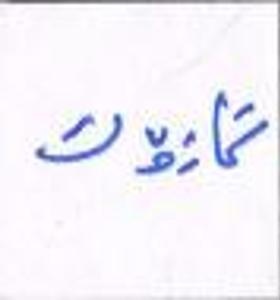 تمازوّت